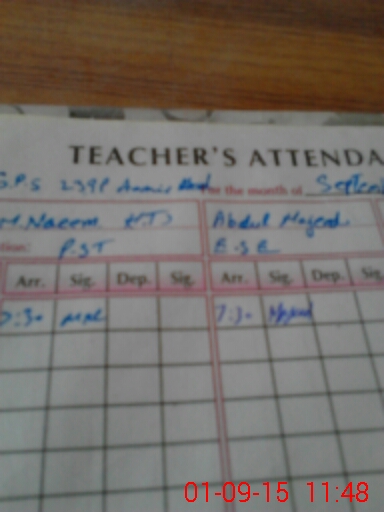 TEACHER'S ATTENDA
G.P.S 239P for the month of Septem
M. Naeem (H.T) Abdul Majeed
tion: P.S.T E.S.E
Arr. Sig. Dep. Sig. Arr. Sig. Dep. Sig.
7:30 7:30
01-09-15 11:48